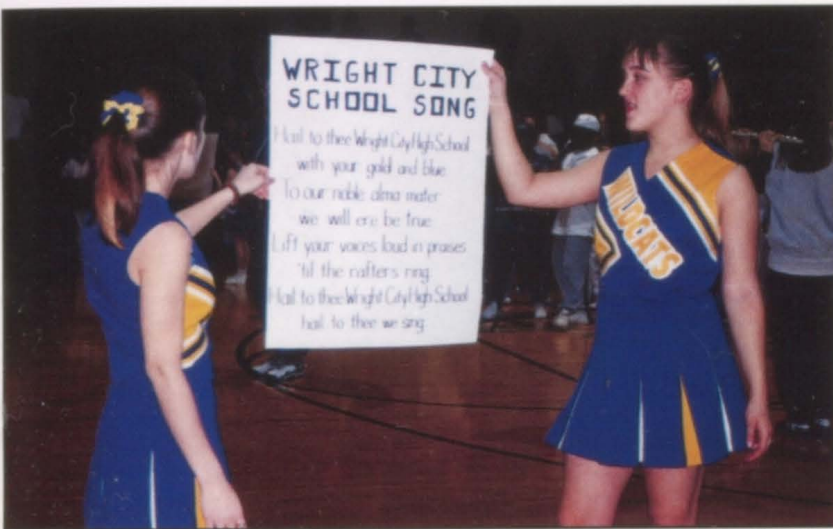 WRIGHT CITY
SCHOOL SONG
Hail to thee Wright City High School
with your gold and blue
To our noble alma mater
we will ere be true
Lift your voices loud in praises
'til the rafters ring.
Hail to thee Wright City High School
hail to thee we sing.
WILDCATS